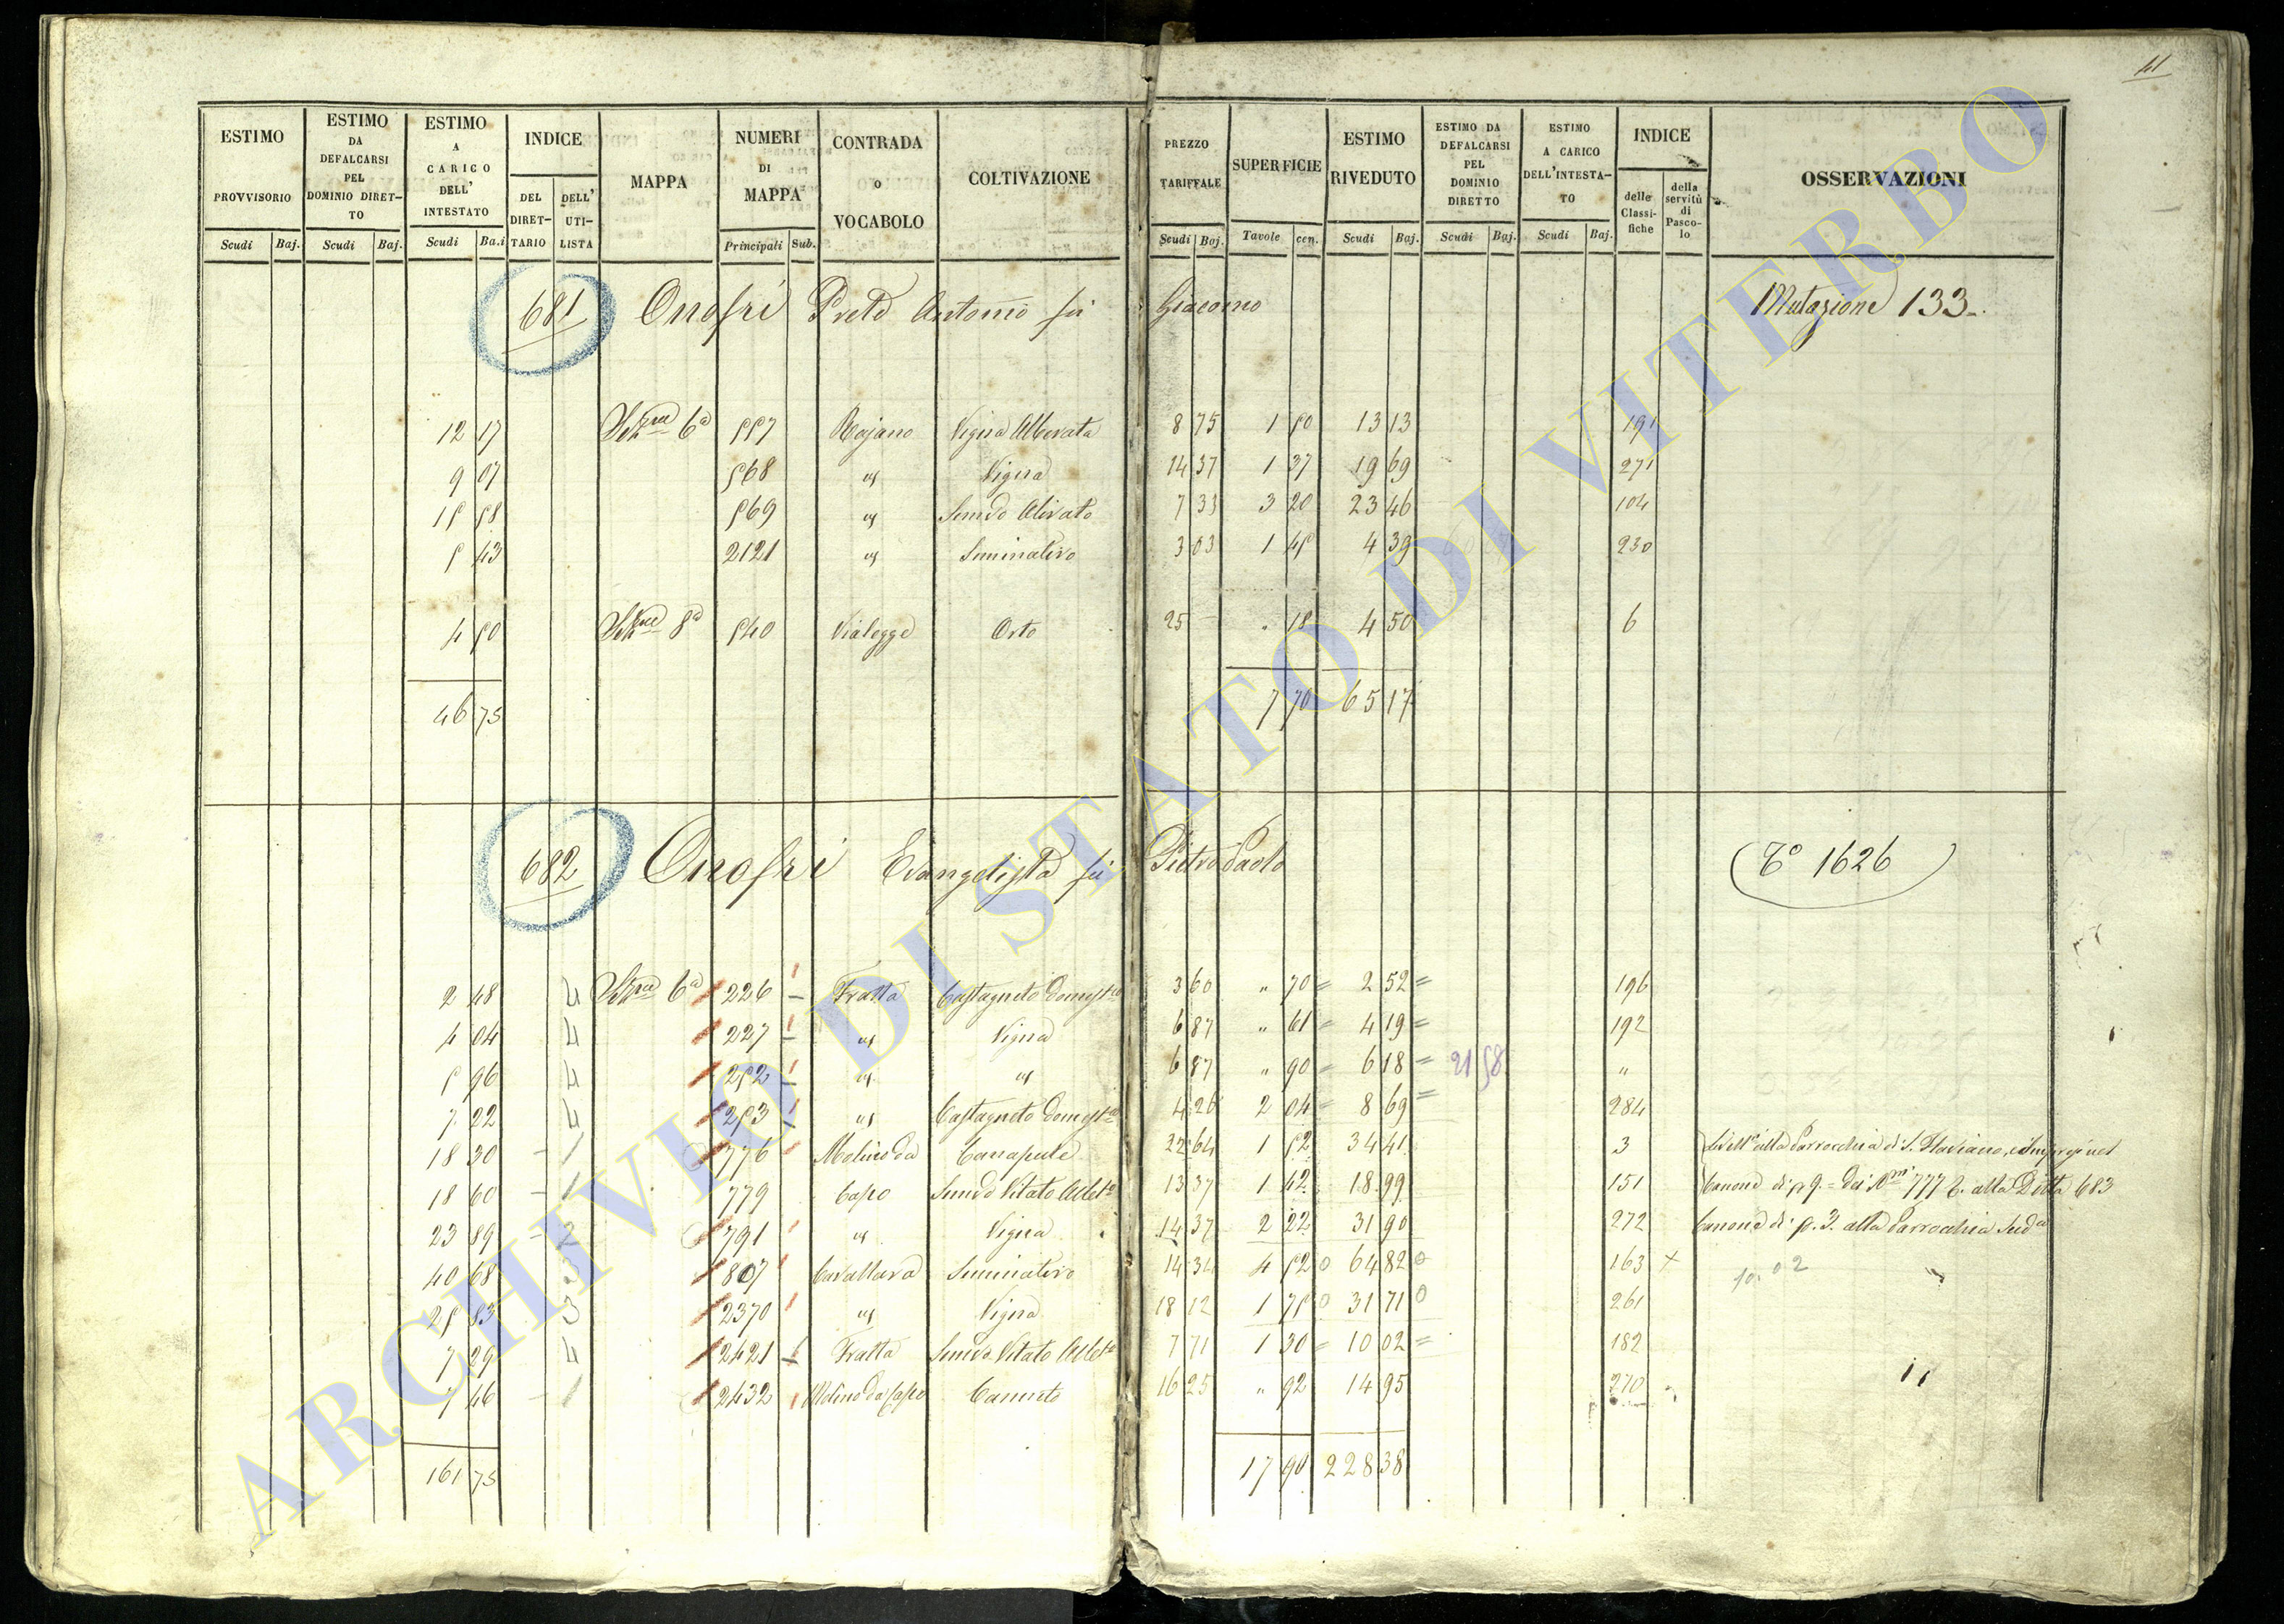 41
ESTIMO PROVVISORIO Scudi Baj.
ESTIMO DA DEFALCARSI PEL DOMINIO DIRETTO Scudi Baj.
ESTIMO A CARICO DELL' INTESTATO Scudi Ba.i
INDICE DEL DIRETTARIO DELL' UTILISTA
MAPPA
NUMERI DI MAPPA Principali Sub.
CONTRADA O VOCABOLO
COLTIVAZIONE
PREZZO TARIFFALE Scudi Baj.
SUPERFICIE Tavole cen.
ESTIMO RIVEDUTO Scudi Baj.
ESTIMO DA DEFALCARSI PEL DOMINIO DIRETTO Scudi Baj.
ESTIMO A CARICO DELL'INTESTATO Scudi Baj.
INDICE delle Classifiche della servitù di Pascolo
OSSERVAZIONI
681 Onofri Prete Antonio fu Giacomo Mutazione 133
12 17 Sezne 6a 557 Rojano Vigna Alberata 8 75 1 50 13 13 191
9 07 568 " Vigna 14 37 1 37 19 69 271
15 58 569 " Semvo Olivato 7 33 3 20 23 46 104
5 43 2121 " Seminativo 3 03 1 45 4 39 230
4 50 Sezne 8a 540 Vialegge Orto 25 " 18 4 50 6
46 75 7 70 65 17
682 Onofri Evangelista fu Pietro Paolo (To 1626)
2 48 4 Sezne 6a 226 Fratta Castagneto Domestco 3 60 " 70 = 2 52 = 196
4 04 4 227 " Vigna 6 87 " 61 = 4 19 = 192
5 96 4 252 " " 6 87 " 90 = 6 18 = 21 58 "
7 22 4 253 " Castagneto Domestco 4 26 2 04 = 8 69 = 284
18 30 1 776 Molino da Canapule 22 64 1 52 34 41 3 alla Parrocchia di S. Flaviano
18 60 1 779 Capo Semvo Vitato Albto 13 37 1 42 18 99 151 Canone di p 9. dei Nri 777 alla Ditta 683
23 89 2 791 " Vigna 14 37 2 22 31 90 272 Canone di p. 3. alla Parrocchia Suda
40 68 3 807 Cavallara Seminativo 14 34 4 52 0 64 82 0 163 x
25 83 3 2370 " Vigna 18 12 1 75 0 31 71 0 261
7 29 4 2421 Fratta Semvo Vitato Albto 7 71 1 30 = 10 02 = 182
7 46 1 2432 Molino da Capo Canneto 16 25 " 92 14 95 270
161 75 17 90 228 38
ARCHIVIO DI STATO DI VITERBO